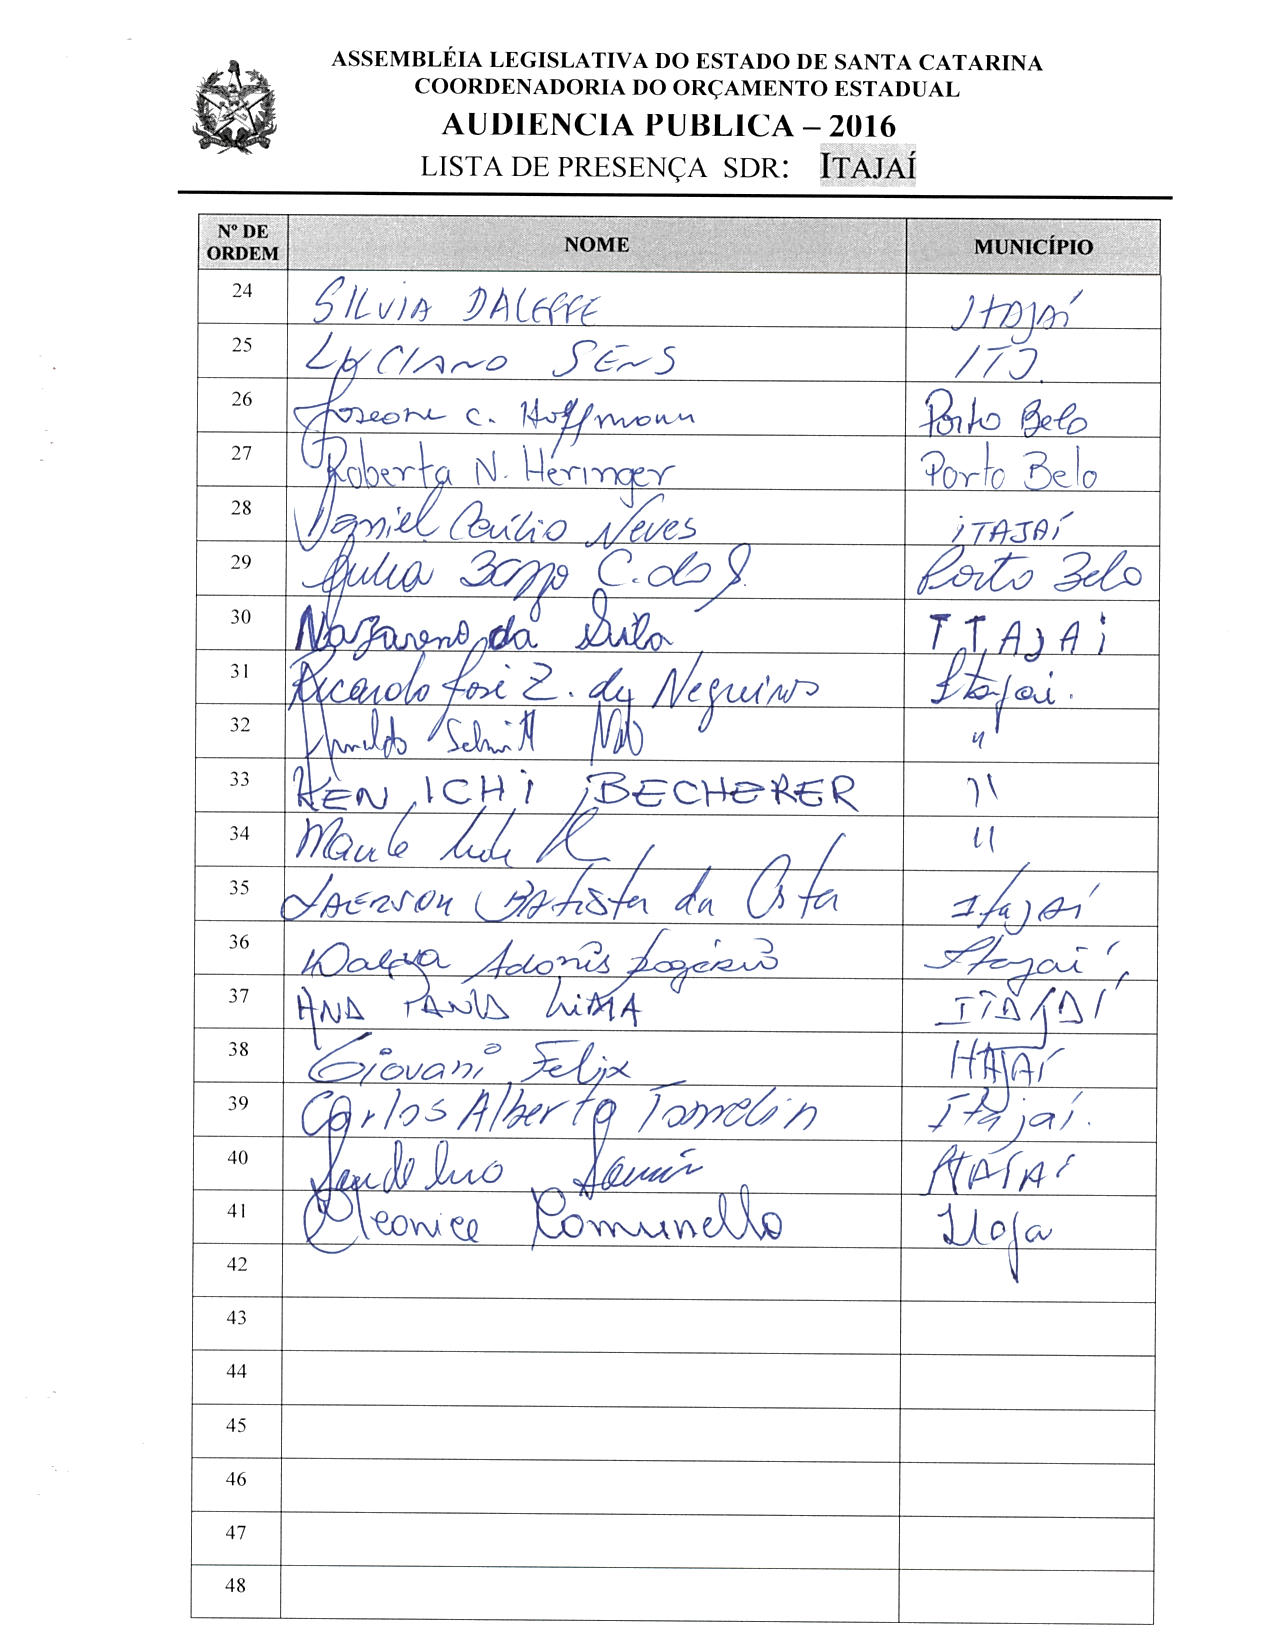 ASSEMBLÉIA LEGISLATIVA DO ESTADO DE SANTA CATARINA
COORDENADORIA DO ORÇAMENTO ESTADUAL
AUDIENCIA PUBLICA – 2016
LISTA DE PRESENÇA SDR: ITAJAÍ
Nº DE ORDEM NOME MUNICÍPIO
24 SILVIA DALEFFE ITAJAÍ
25 LUCIANO SENS ITJ.
26 Joseane C. Hoffmann Porto Belo
27 Roberta N. Heringer Porto Belo
28 Daniel Cecílio Neves ITAJAÍ
29 Julia C. dos S. Porto Belo
30 Nazareno da Silva ITAJAI
31 Ricardo José Z. de Itajaí.
32 Arnaldo Schmitt "
33 KEN ICHI BECHERER "
34 "
35 LAERSON BATista da Costa ItajAí
36 Dalva Adonis Rogério Itajaí
37 ANA PAULA LIMA ITAJAÍ
38 Giovani Felix ITAJAÍ
39 Carlos Alberto Tomelin Itajaí.
40 ITAJAÍ
41 Cleonice Comunello
42
43
44
45
46
47
48